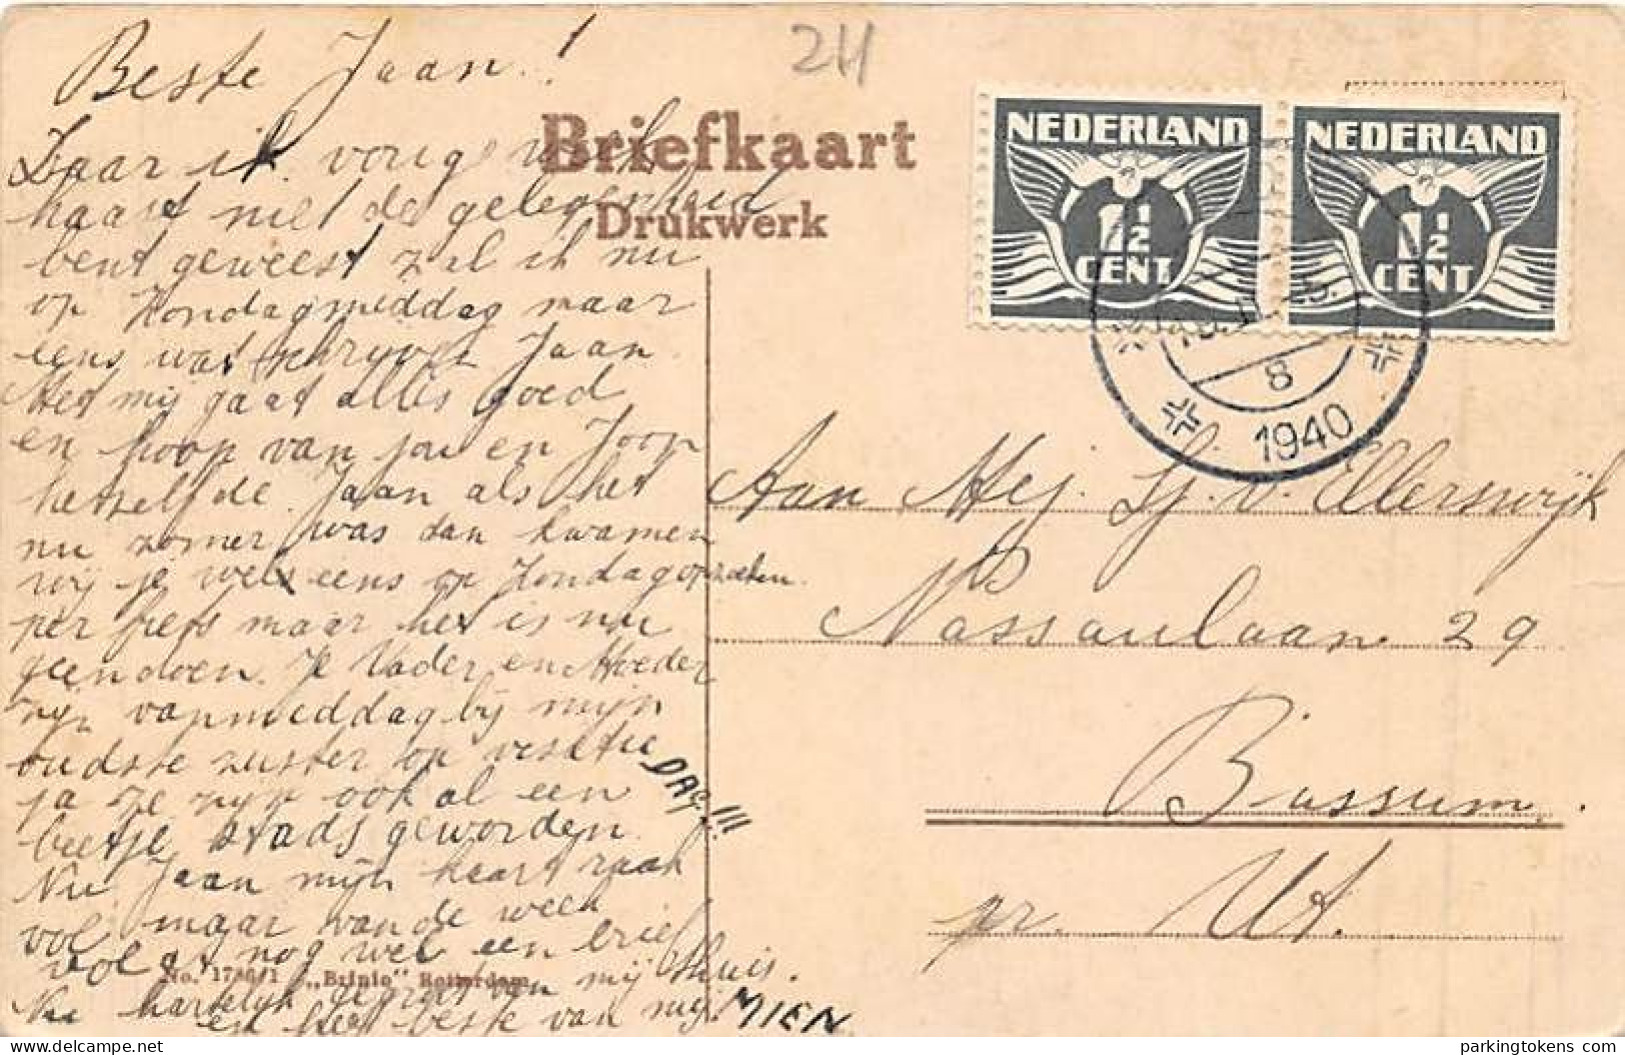 Beste Jaan.!
211
Briefkaart
Drukwerk
NEDERLAND
1½
CENT
NEDERLAND
1½
CENT
8
1940
Daar ik vorige week
haast niet de gelegenheid
bent geweest zal ik nu
op Zondagmiddag maar
eens wat schryven Jaan.
Met mij gaat alles goed
en hoop van jou en Joop
hetzelfde. Jaan als het
nu zomer was dan kwamen
wij je wel eens op Zondag opzoeken.
per fiets maar het is nu
geen doen. Je Vader en Moeder
zijn vanmiddag bij mijn
oudste zuster op visite
ja ze zijn ook al een
beetje stads geworden.
Nu Jaan mijn kaart raak
vol maar van de week
volgt nog wel een brief
Nu hartelijk gegroet van mij thuis.
en het beste van mij.
DAG!!!
MIEN
Aan Mej. Lj. v. Ellerswijk
Nassaulaan 29
Bussum.
pr. Ut.
No. 1780/1 „Brinio" Rotterdam
delcampe.net
parkingtokens.com